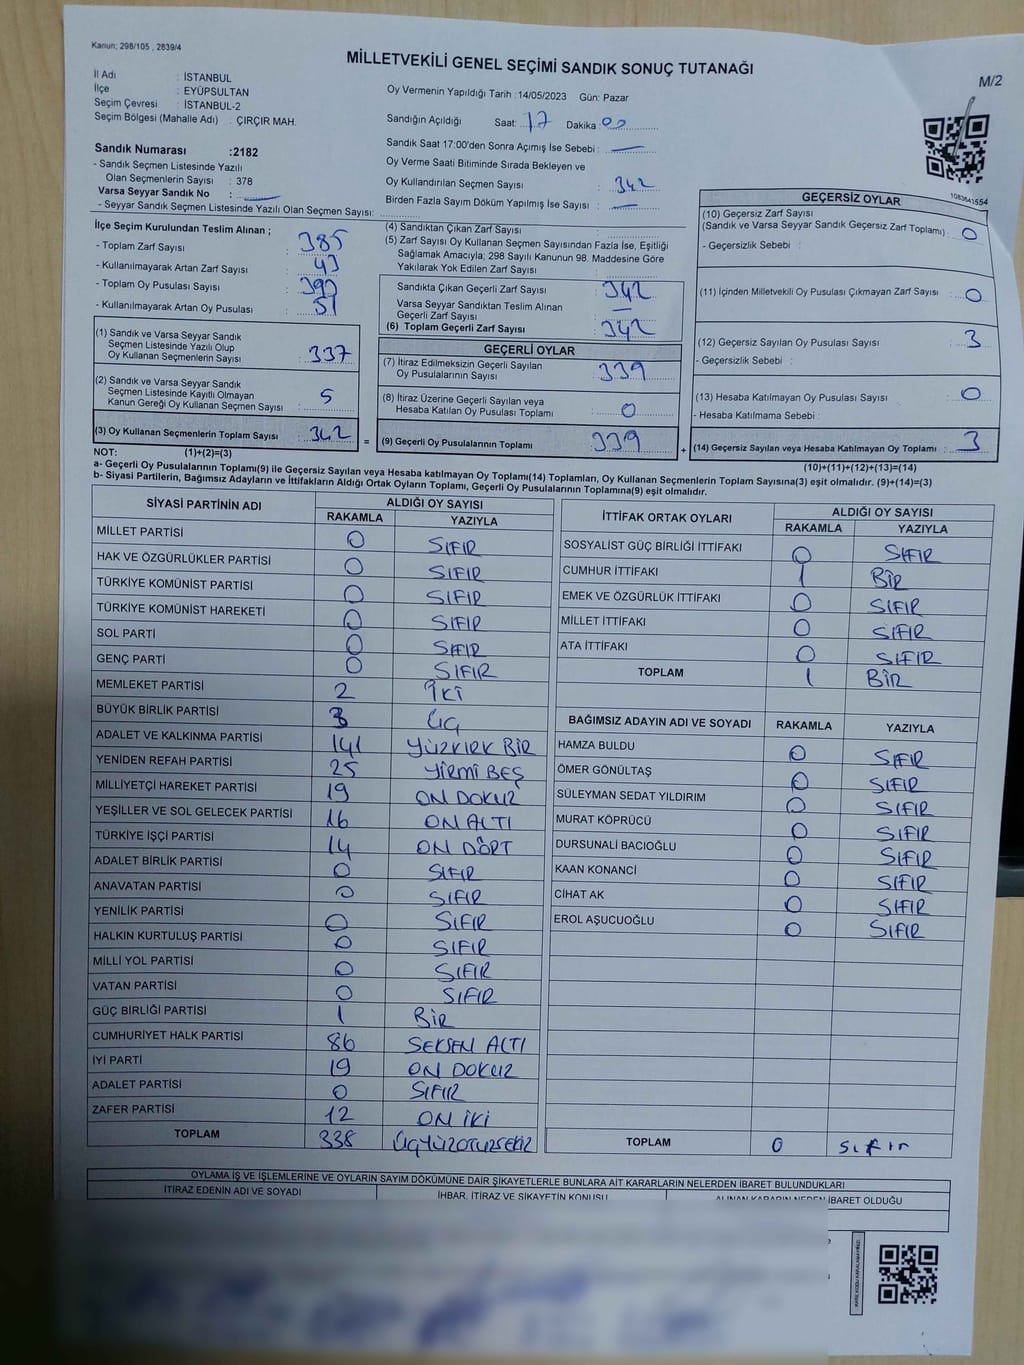 Kanun; 298/105 , 2839/4
MİLLETVEKİLİ GENEL SEÇİMİ SANDIK SONUÇ TUTANAĞI
M/2
İl Adı : İSTANBUL
İlçe : EYÜPSULTAN
Seçim Çevresi : İSTANBUL-2
Seçim Bölgesi (Mahalle Adı) : ÇIRÇIR MAH.
Sandık Numarası :2182
- Sandık Seçmen Listesinde Yazılı
Olan Seçmenlerin Sayısı : 378
Varsa Seyyar Sandık No :
- Seyyar Sandık Seçmen Listesinde Yazılı Olan Seçmen Sayısı:
Oy Vermenin Yapıldığı Tarih :14/05/2023 Gün: Pazar
Sandığın Açıldığı Saat: 17 Dakika: 00
Sandık Saat 17:00'den Sonra Açımış İse Sebebi : —
Oy Verme Saati Bitiminde Sırada Bekleyen ve
Oy Kullandırılan Seçmen Sayısı : 342
Birden Fazla Sayım Döküm Yapılmış İse Sayısı : —
1083641554
İlçe Seçim Kurulundan Teslim Alınan ;
- Toplam Zarf Sayısı : 385
- Kullanılmayarak Artan Zarf Sayısı : 43
- Toplam Oy Pusulası Sayısı : 393
- Kullanılmayarak Artan Oy Pusulası : 51
(1) Sandık ve Varsa Seyyar Sandık
Seçmen Listesinde Yazılı Olup
Oy Kullanan Seçmenlerin Sayısı : 337
(2) Sandık ve Varsa Seyyar Sandık
Seçmen Listesinde Kayıtlı Olmayan
Kanun Gereği Oy Kullanan Seçmen Sayısı : 5
(3) Oy Kullanan Seçmenlerin Toplam Sayısı : 342
(4) Sandıktan Çıkan Zarf Sayısı :
(5) Zarf Sayısı Oy Kullanan Seçmen Sayısından Fazla İse, Eşitliği
Sağlamak Amacıyla; 298 Sayılı Kanunun 98. Maddesine Göre
Yakılarak Yok Edilen Zarf Sayısı :
Sandıkta Çıkan Geçerli Zarf Sayısı : 342
Varsa Seyyar Sandıktan Teslim Alınan
Geçerli Zarf Sayısı : —
(6) Toplam Geçerli Zarf Sayısı : 342
GEÇERLİ OYLAR
(7) İtiraz Edilmeksizin Geçerli Sayılan
Oy Pusulalarının Sayısı : 339
(8) İtiraz Üzerine Geçerli Sayılan veya
Hesaba Katılan Oy Pusulası Toplamı : 0
= (9) Geçerli Oy Pusulalarının Toplamı : 339
GEÇERSİZ OYLAR
(10) Geçersiz Zarf Sayısı
(Sandık ve Varsa Seyyar Sandık Geçersiz Zarf Toplamı) : 0
- Geçersizlik Sebebi :
(11) İçinden Milletvekili Oy Pusulası Çıkmayan Zarf Sayısı : 0
(12) Geçersiz Sayılan Oy Pusulası Sayısı : 3
- Geçersizlik Sebebi :
(13) Hesaba Katılmayan Oy Pusulası Sayısı : 0
- Hesaba Katılmama Sebebi :
+ (14) Geçersiz Sayılan veya Hesaba Katılmayan Oy Toplamı : 3
NOT: (1)+(2)=(3)
(10)+(11)+(12)+(13)=(14)
a- Geçerli Oy Pusulalarının Toplamı(9) ile Geçersiz Sayılan veya Hesaba katılmayan Oy Toplamı(14) Toplamları, Oy Kullanan Seçmenlerin Toplam Sayısına(3) eşit olmalıdır. (9)+(14)=(3)
b- Siyasi Partilerin, Bağımsız Adayların ve İttifakların Aldığı Ortak Oyların Toplamı, Geçerli Oy Pusulalarının Toplamına(9) eşit olmalıdır.
SİYASİ PARTİNİN ADI ALDIĞI OY SAYISI
RAKAMLA YAZIYLA
MİLLET PARTİSİ 0 SIFIR
HAK VE ÖZGÜRLÜKLER PARTİSİ 0 SIFIR
TÜRKİYE KOMÜNİST PARTİSİ 0 SIFIR
TÜRKİYE KOMÜNİST HAREKETİ 0 SIFIR
SOL PARTİ 0 SIFIR
GENÇ PARTİ 0 SIFIR
MEMLEKET PARTİSİ 2 İKİ
BÜYÜK BİRLİK PARTİSİ 3 ÜÇ
ADALET VE KALKINMA PARTİSİ 141 YÜZKIRK BİR
YENİDEN REFAH PARTİSİ 25 YİRMİ BEŞ
MİLLİYETÇİ HAREKET PARTİSİ 19 ON DOKUZ
YEŞİLLER VE SOL GELECEK PARTİSİ 16 ON ALTI
TÜRKİYE İŞÇİ PARTİSİ 14 ON DÖRT
ADALET BİRLİK PARTİSİ 0 SIFIR
ANAVATAN PARTİSİ 0 SIFIR
YENİLİK PARTİSİ 0 SIFIR
HALKIN KURTULUŞ PARTİSİ 0 SIFIR
MİLLİ YOL PARTİSİ 0 SIFIR
VATAN PARTİSİ 0 SIFIR
GÜÇ BİRLİĞİ PARTİSİ 1 BİR
CUMHURİYET HALK PARTİSİ 86 SEKSEN ALTI
İYİ PARTİ 19 ON DOKUZ
ADALET PARTİSİ 0 SIFIR
ZAFER PARTİSİ 12 ON İKİ
TOPLAM 338 ÜÇYÜZOTUZSEKİZ
İTTİFAK ORTAK OYLARI ALDIĞI OY SAYISI
RAKAMLA YAZIYLA
SOSYALİST GÜÇ BİRLİĞİ İTTİFAKI 0 SIFIR
CUMHUR İTTİFAKI 1 BİR
EMEK VE ÖZGÜRLÜK İTTİFAKI 0 SIFIR
MİLLET İTTİFAKI 0 SIFIR
ATA İTTİFAKI 0 SIFIR
TOPLAM 1 BİR
BAĞIMSIZ ADAYIN ADI VE SOYADI RAKAMLA YAZIYLA
HAMZA BULDU 0 SIFIR
ÖMER GÖNÜLTAŞ 0 SIFIR
SÜLEYMAN SEDAT YILDIRIM 0 SIFIR
MURAT KÖPRÜCÜ 0 SIFIR
DURSUNALİ BACIOĞLU 0 SIFIR
KAAN KONANCİ 0 SIFIR
CİHAT AK 0 SIFIR
EROL AŞUCUOĞLU 0 SIFIR
TOPLAM 0 sıfır
OYLAMA İŞ VE İŞLEMLERİNE VE OYLARIN SAYIM DÖKÜMÜNE DAİR ŞİKAYETLERLE BUNLARA AİT KARARLARIN NELERDEN İBARET BULUNDUKLARI
İTİRAZ EDENİN ADI VE SOYADI İHBAR, İTİRAZ VE ŞİKAYETİN KONUSU ALINAN KARARIN NEDEN İBARET OLDUĞU